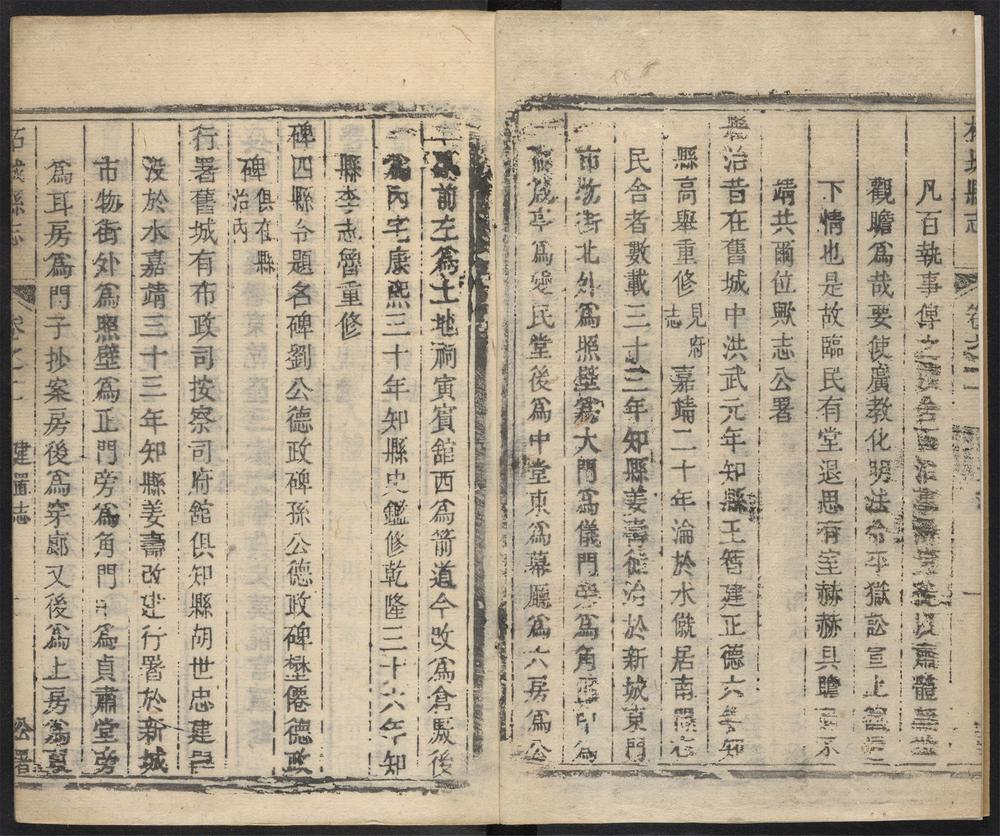 柘城縣志
卷之二
凡百執事傳
觀瞻爲哉要使廣教化明法令平獄訟宣上
下情也是故臨民有堂退思有室赫赫具瞻
靖共爾位歟志公署
縣治昔在舊城中洪武元年知縣王智建正德六年知
縣高舉重修見府志嘉靖二十年淪於水僦居南關
民舍者數載三十三年知縣姜壽徙治於新城東門
市物街北外爲照壁爲大門爲儀門旁爲角門中爲
亭爲愛民堂後爲中堂東爲幕廳爲六房爲公
前左爲土地祠寅賓館西爲箭道今改爲倉廒後
爲內宅康熙三十年知縣史鑑修乾隆三十六年知
縣李志魯重修
碑四縣令題名碑劉公德政碑孫公德政碑楚僊德政
碑俱在縣治內
行署舊城有布政司按察司府館俱知縣胡世忠建
沒於水嘉靖三十三年知縣姜壽改建行署於新城
市物街外爲照壁爲正門旁爲角門中爲貞肅堂旁
爲耳房爲門子抄案房後爲穿廊又後爲上房爲
柘城縣志
卷之二
建置志
公署